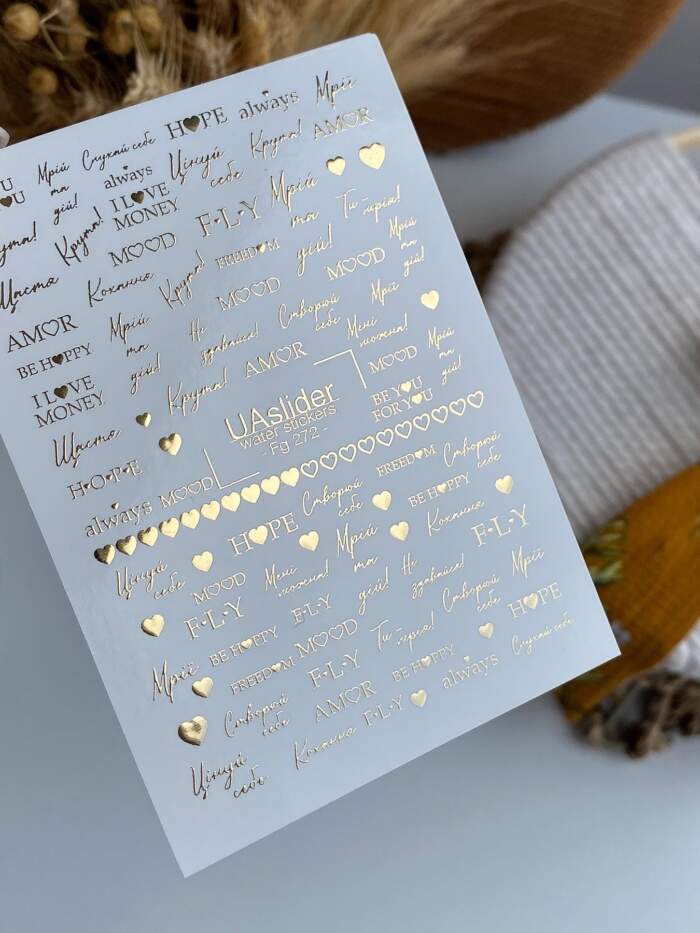 HOPE always Мрії
Мрій та дій! Слухай себе
always Цінуй себе Крута! AMOR
I LOVE MONEY
Крута! MOOD F·L·Y Мрій та дій! Ти мрія!
Щастя Кохання Крута! FREEDOM
MOOD MOOD Мрій та дій!
AMOR Мрій та дій! Не здавайся! Створюй себе Мрії
BE HAPPY
I LOVE MONEY Крута! AMOR Мені можна!
MOOD Мрій та дій!
Щастя UAslider
water stickers
- Fg 272 -
BE YOU FOR YOU
H·O·P·E
always MOOD
FREEDOM Створюй себе
HOPE Створюй себе BE HAPPY
Цінуй себе MOOD Мені можна! Мрій та дій! Кохання F·L·Y
F·L·Y F·L·Y Не здавайся! Створюй себе Мрії
BE HAPPY MOOD Ти мрія! HOPE
Мрії FREEDOM F·L·Y BE HAPPY always Слухай себе
Створюй себе AMOR
Цінуй себе Кохання F·L·Y